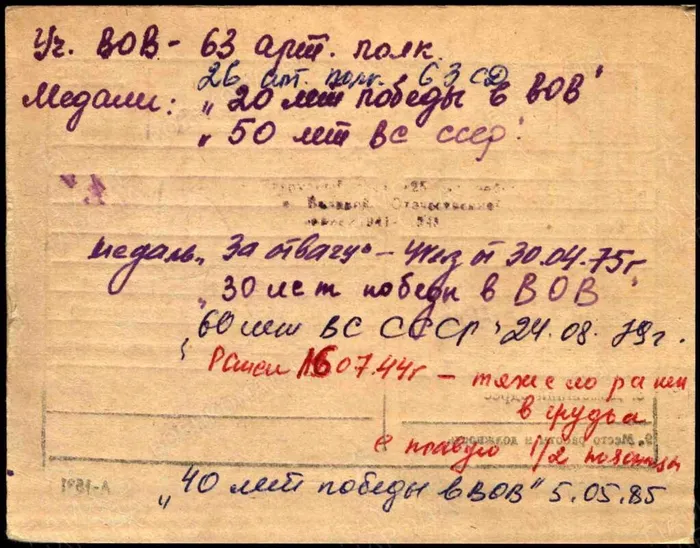 Уч. ВОВ - 63 арт. полк
26 арт. полк. 63 СД
Медали: „20 лет победы в ВОВ"
„50 лет ВС СССР"
25
Великой Отечественной
1941-
медаль „За отвагу" - Указ от 30.04.75г
„30 лет победы в ВОВ"
„60 лет ВС СССР" 24.08.79г.
Ранен 16 07.44г - тяжело ранен
в грудь
в правую 1/2
9. Место работы и должность
„40 лет победы в ВОВ" 5.05.85